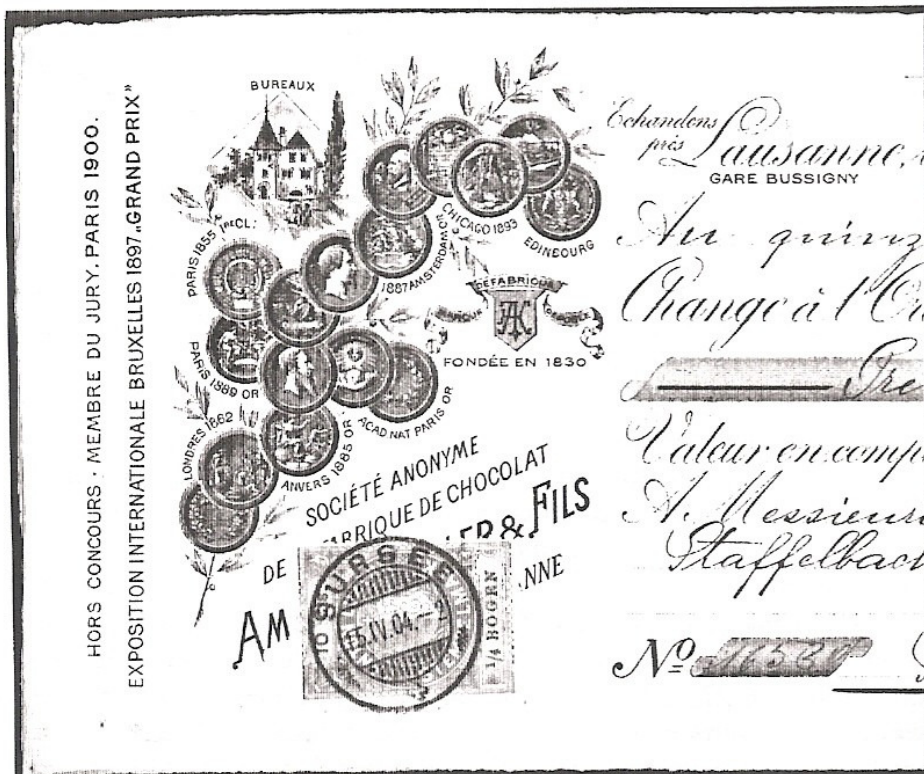 HORS CONCOURS · MEMBRE DU JURY. PARIS 1900.
EXPOSITION INTERNATIONALE BRUXELLES 1897 „GRAND PRIX”
BUREAUX
PARIS 1855 1re CL:
PARIS 1889 OR
LONDRES 1862
ANVERS 1885 OR
ACAD. NAT PARIS OR
1887 AMSTERDAM OR
CHICAGO 1893
EDINBOURG
MARQUE DE FABRIQUE
FAC
FONDÉE EN 1830
SOCIÉTÉ ANONYME
DE FABRIQUE DE CHOCOLAT
AM LER & FILS
NNE
SURSEE
15.IV.04.–2
¼ BOGEN
Echandens
près Lausanne,
GARE BUSSIGNY
Au quinz
Change à l'Or
Fre
Valeur en comp
A Messieurs
Staffelbach
No 16580